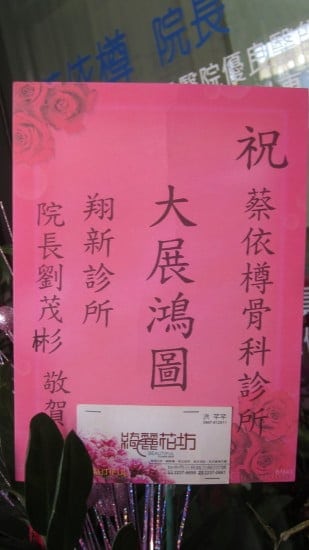 依樽 院長
醫院優良醫
祝
蔡依樽骨科診所
大展鴻圖
翔新診所
院長劉茂彬 敬賀
綺麗花坊
BEAUTIFUL